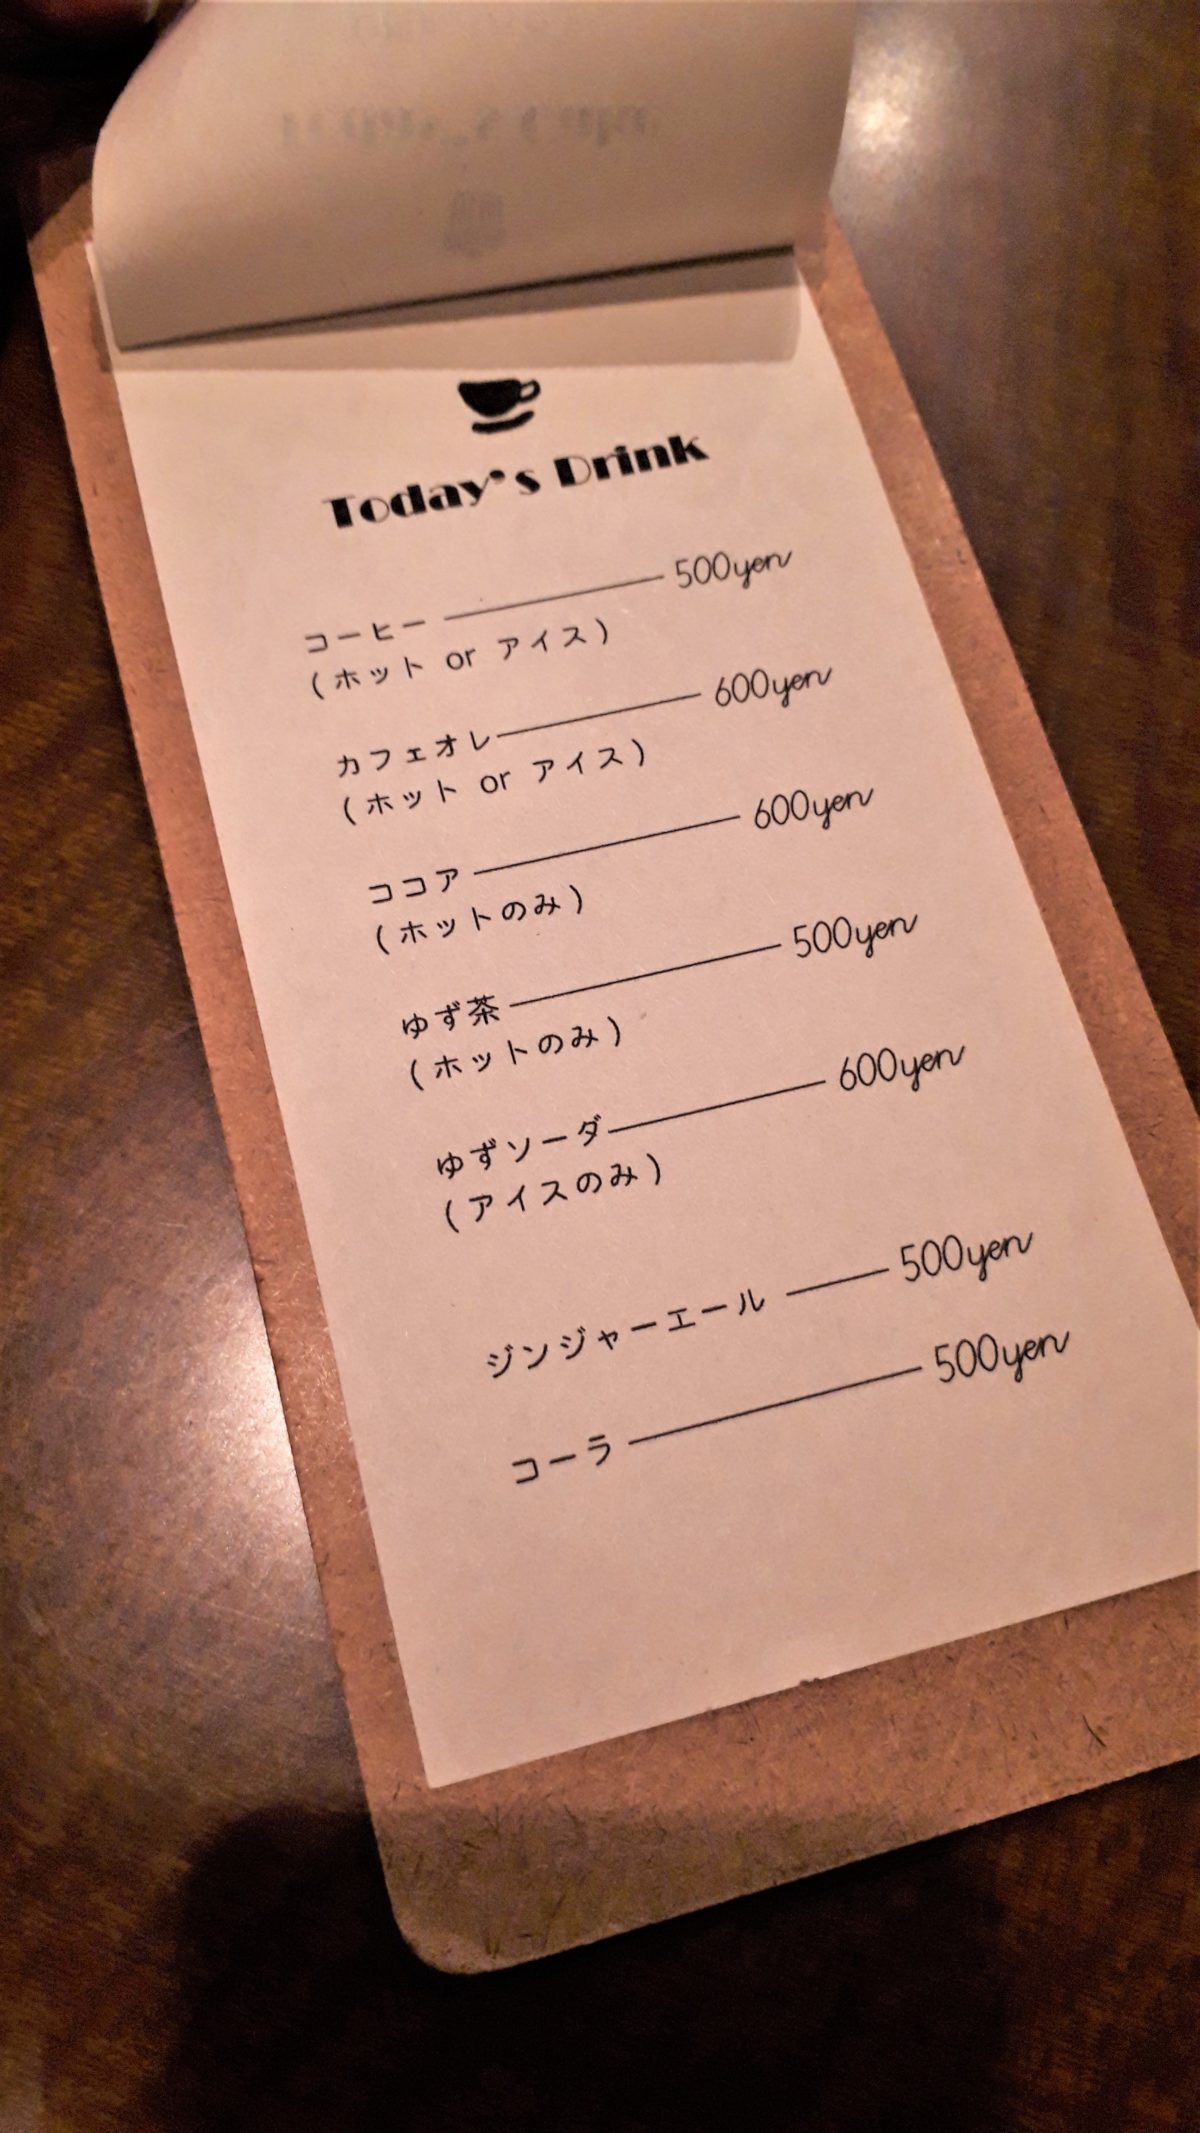 Today's Drink
コーヒー 500yen
(ホット or アイス)
カフェオレ 600yen
(ホット or アイス)
ココア 600yen
(ホットのみ)
ゆず茶 500yen
(ホットのみ)
ゆずソーダ 600yen
(アイスのみ)
ジンジャーエール 500yen
コーラ 500yen